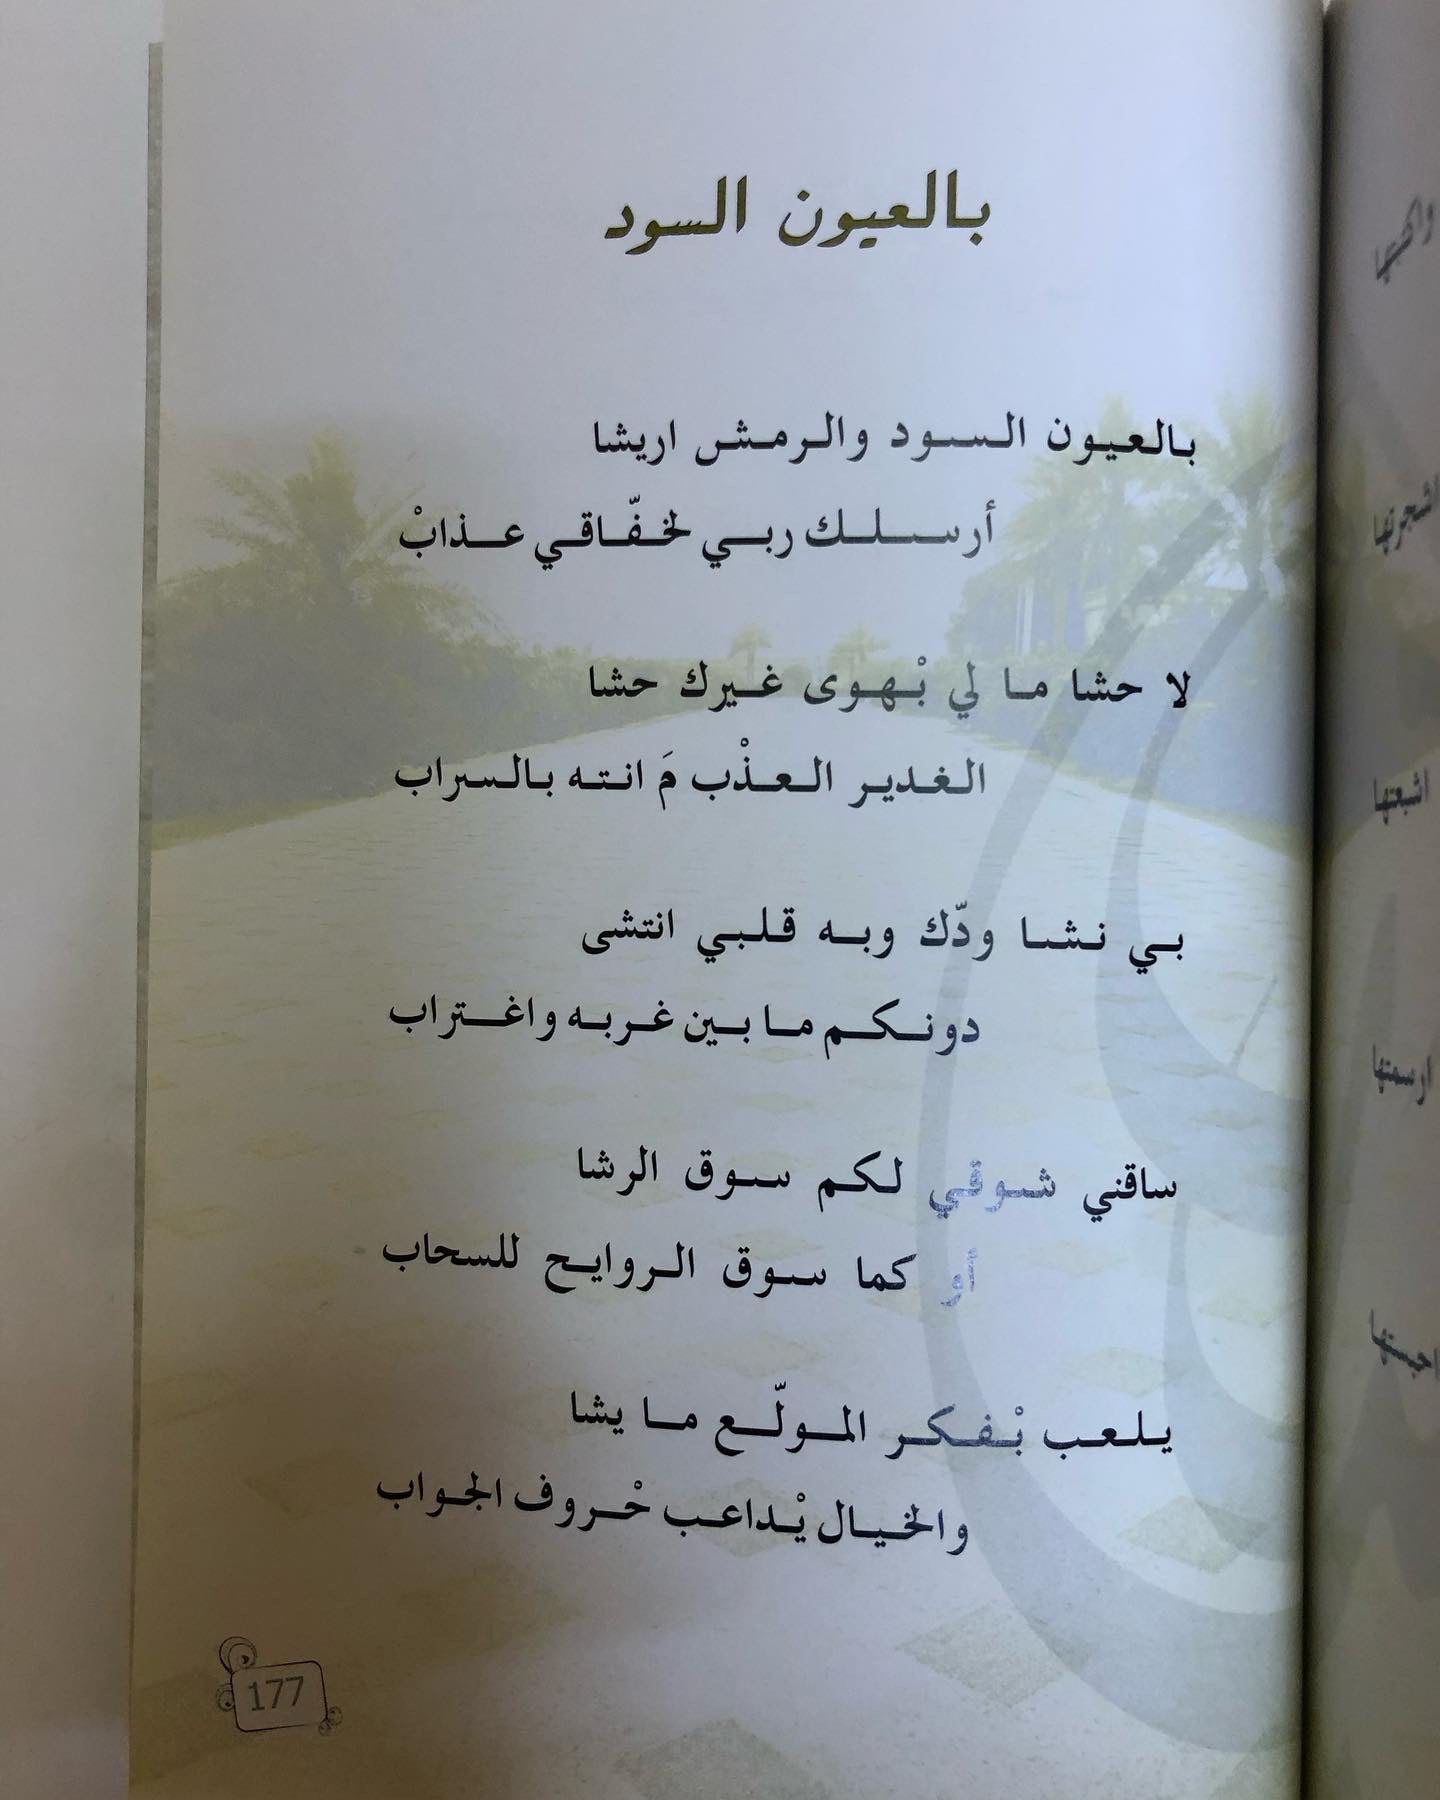 بالعيون السود
بالعيون السود والرمش اريشا
أرسلك ربي لخفّاقي عذابْ
لا حشا ما لي بْهوى غيرك حشا
الغدير العذْب مَ انته بالسراب
بي نشا ودّك وبه قلبي انتشى
دونكم ما بين غربه واغتراب
ساقني شوقي لكم سوق الرشا
أو كما سوق الروايح للسحاب
يلعب بْفكر المولّع ما يشا
والخيال يْداعب حْروف الجواب
177
اشبعتها
ارسمتها